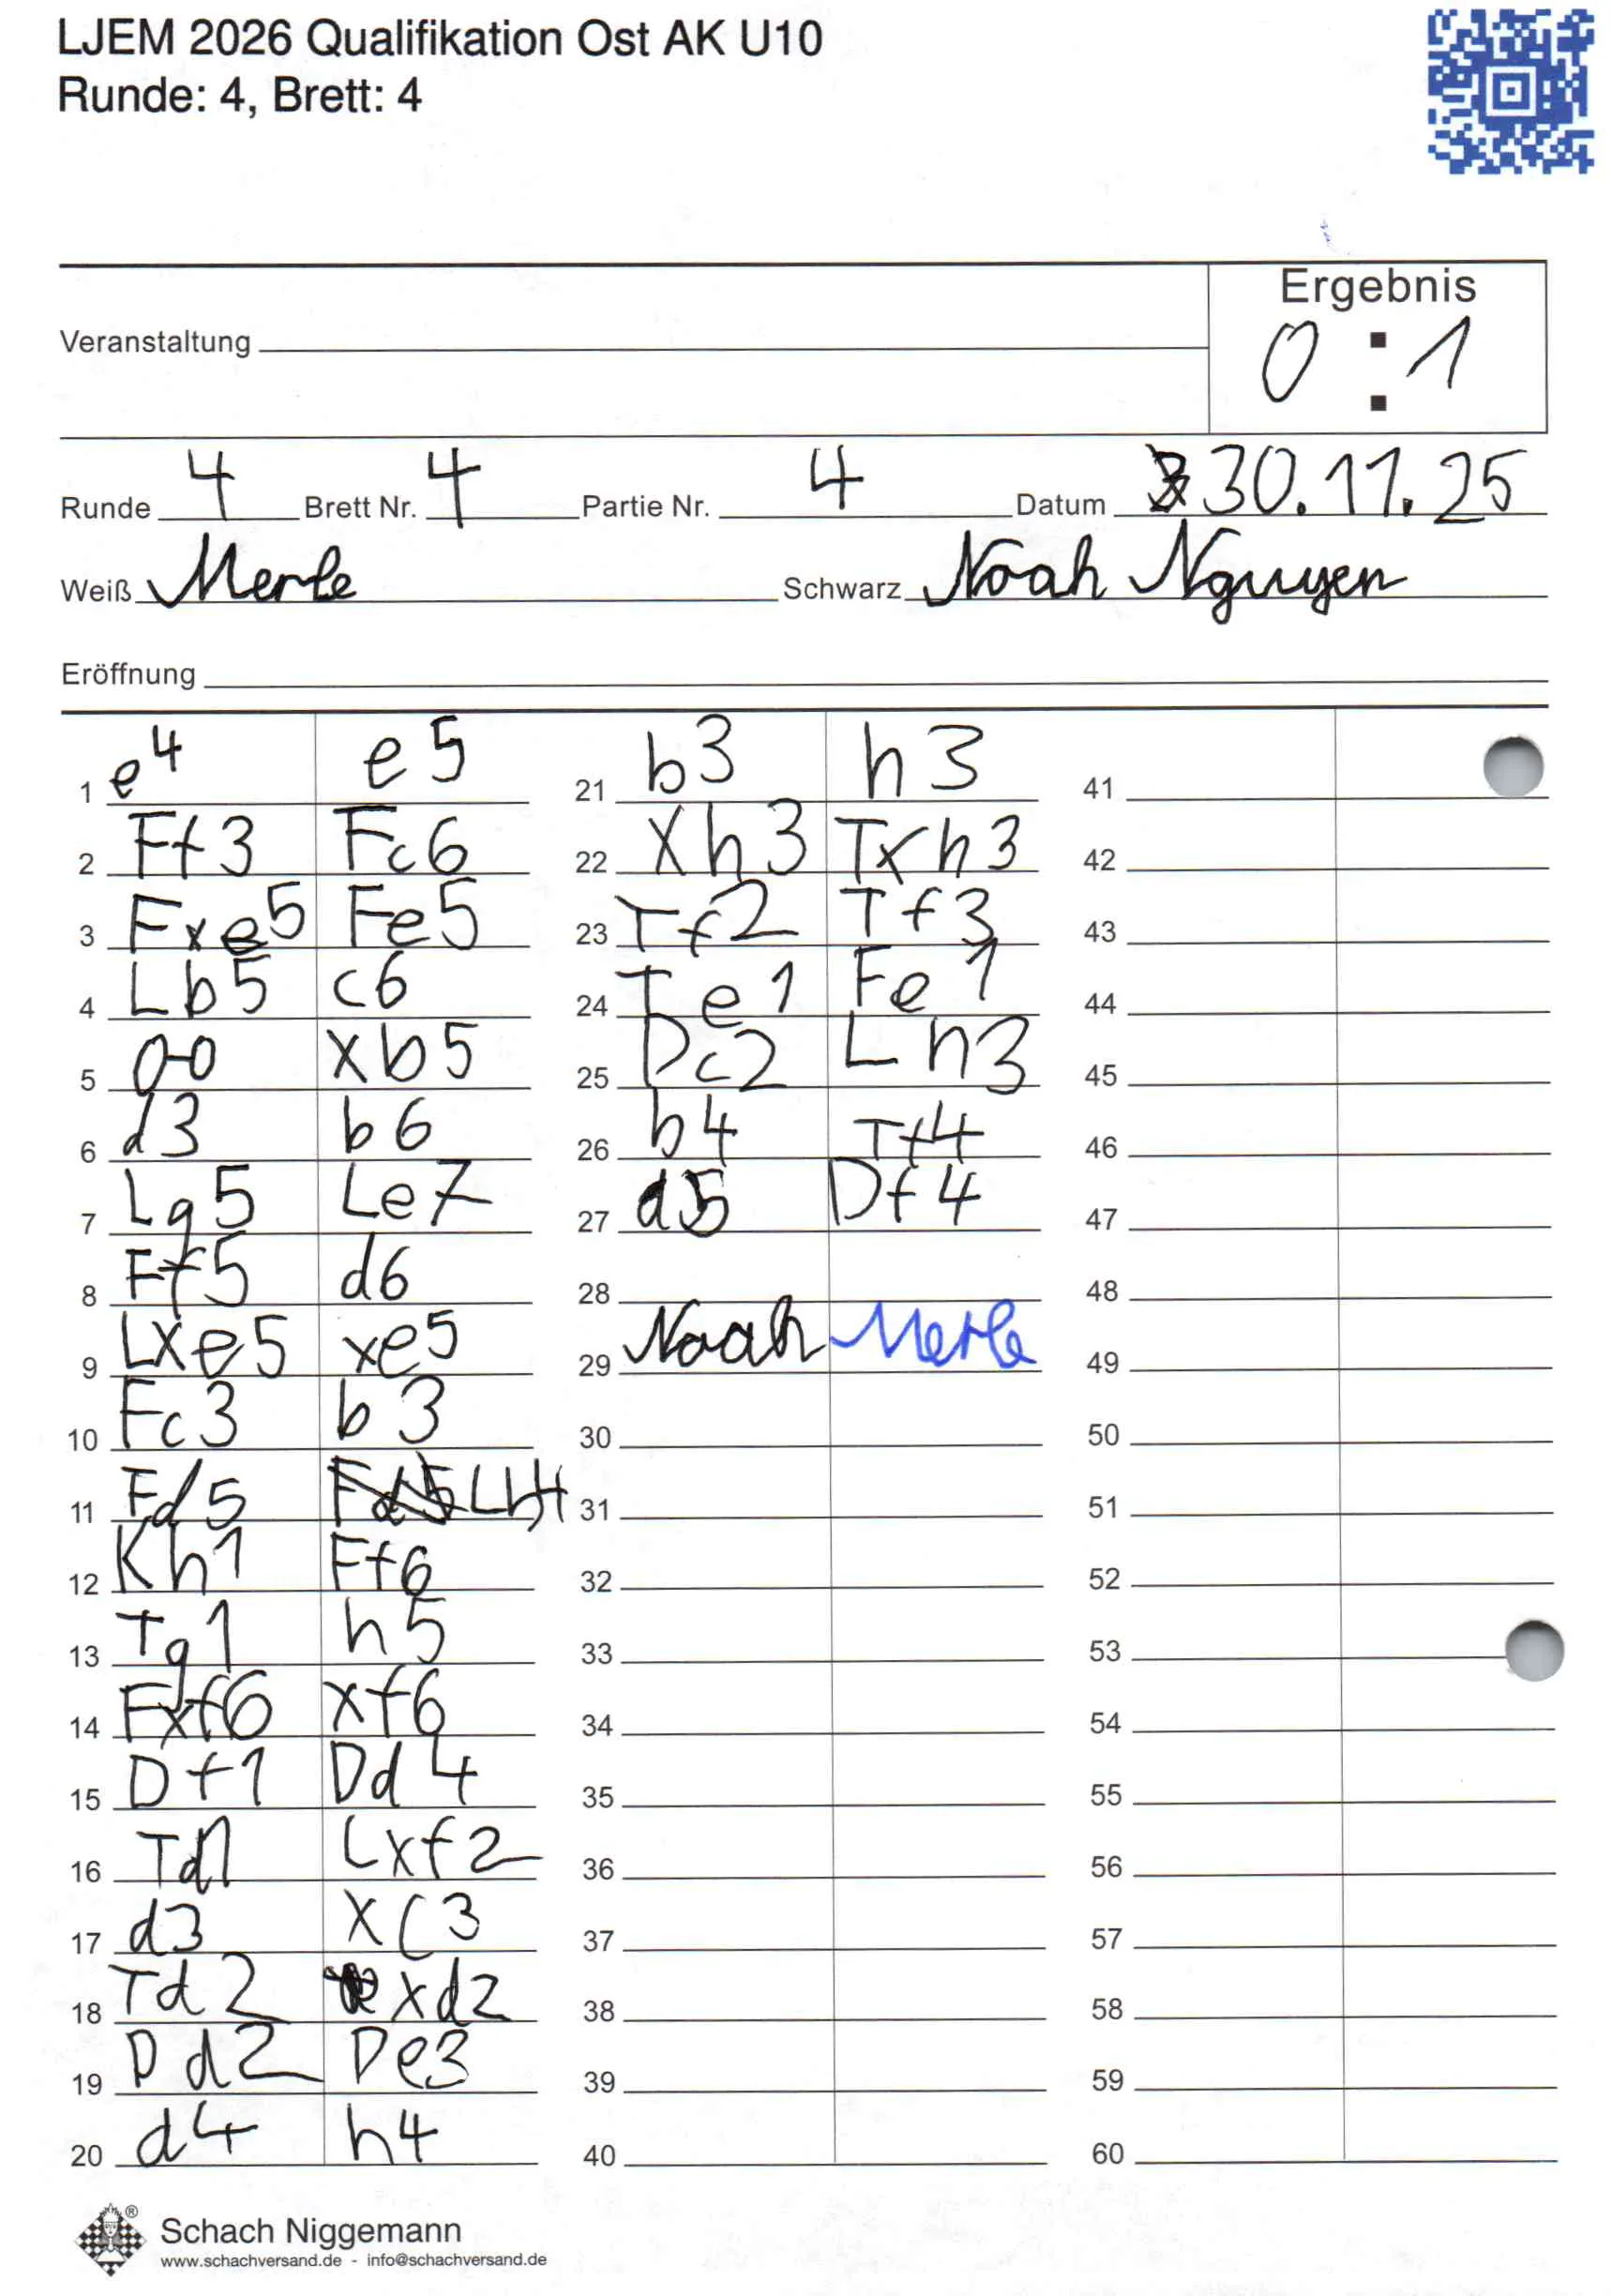 LJEM 2026 Qualifikation Ost AK U10
Runde: 4, Brett: 4
Ergebnis
Veranstaltung
0 : 1
Runde 4 Brett Nr. 4 Partie Nr. 4 Datum 30.11.25
Weiß Merle Schwarz Noah Nguyen
Eröffnung
1 e4 e5
2 Ff3 Fc6
3 Fxe5 Fe5
4 Lb5 c6
5 0-0 xb5
6 d3 b6
7 Lg5 Le7
8 Ff5 d6
9 Lxe5 xe5
10 Fc3 b3
11 Fd5 Fd5 Lh4
12 Kh1 Ff6
13 Tg1 h5
14 Fxf6 xf6
15 Df1 Dd4
16 Td1 Lxf2
17 d3 xc3
18 Td2 xd2
19 Dd2 De3
20 d4 h4
21 b3 h3
22 xh3 Txh3
23 Tf2 Tf3
24 Te1 Fe1
25 Dc2 Lh3
26 b4 Tf4
27 d5 Df4
28
29 Noah Merle
30
31
32
33
34
35
36
37
38
39
40
41
42
43
44
45
46
47
48
49
50
51
52
53
54
55
56
57
58
59
60
Schach Niggemann
www.schachversand.de - info@schachversand.de